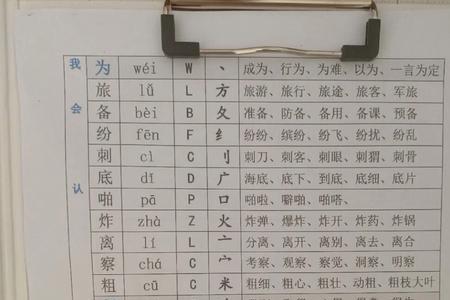 我会认
为 wéi W 丶 成为、行为、为难、以为、一言为定
旅 lǚ L 方 旅游、旅行、旅途、旅客、军旅
备 bèi B 夂 准备、防备、备用、备课、预备
纷 fēn F 纟 纷纷、缤纷、纷飞、纷扰、纷乱
刺 cì C 刂 刺刀、刺客、刺眼、刺猬、刺骨
底 dǐ D 广 海底、底下、到底、底细、底片
啪 pā P 口 啪啦、噼啪、啪嗒、
炸 zhà Z 火 炸弹、爆炸、炸开、炸药、炸锅
离 lí L 亠 分离、离开、离别、离去、离合
察 chá C 宀 考察、观察、察觉、洞察、明察
粗 cū C 米 粗细、粗心、粗壮、动粗、粗枝大叶